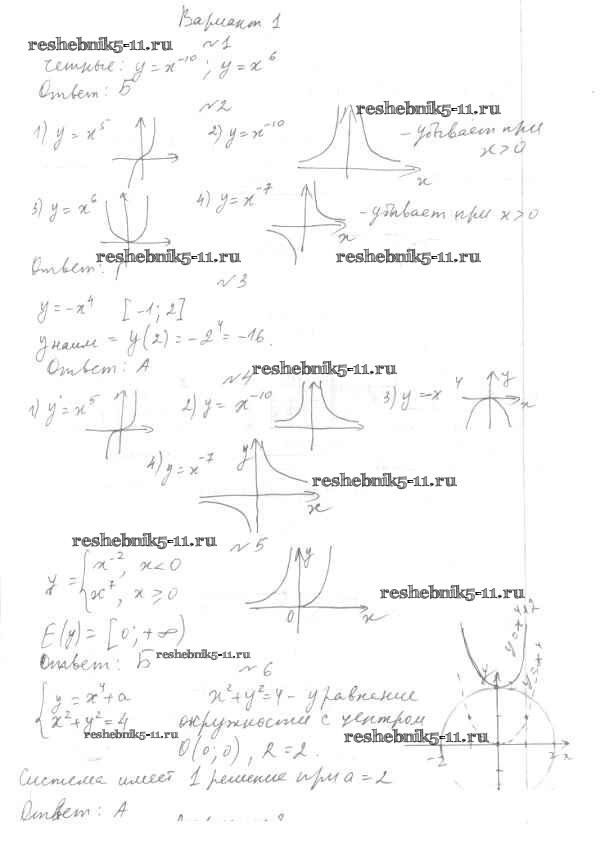 Вариант 1
reshebnik5-11.ru
№1
четные: y = x⁻¹⁰; y = x⁶
Ответ: Б
№2
reshebnik5-11.ru
1) y = x⁵ 2) y = x⁻¹⁰ - убывает при x > 0
x
3) y = x⁶ 4) y = x⁻⁷ - убывает при x > 0
x
reshebnik5-11.ru reshebnik5-11.ru
Ответ: Г
№3
y = -x⁴ [-1; 2]
y наим = y(2) = -2⁴ = -16.
Ответ: А
reshebnik5-11.ru
№4
1) y = x⁵ 2) y = x⁻¹⁰ 3) y = -x⁴ y x
4) y = x⁻⁷ y x
reshebnik5-11.ru
reshebnik5-11.ru
№5
y = { x⁻², x < 0
x⁷, x ≥ 0
y 0 x
reshebnik5-11.ru
E(y) = [0; +∞)
Ответ: Б
reshebnik5-11.ru
№6
{ y = x⁴ + a x² + y² = 4 - уравнение
x² + y² = 4 окружности с центром
reshebnik5-11.ru reshebnik5-11.ru
O(0; 0), R = 2.
y = x⁴ + 2
-2 2 x
Система имеет 1 решение при a = 2
Ответ: А